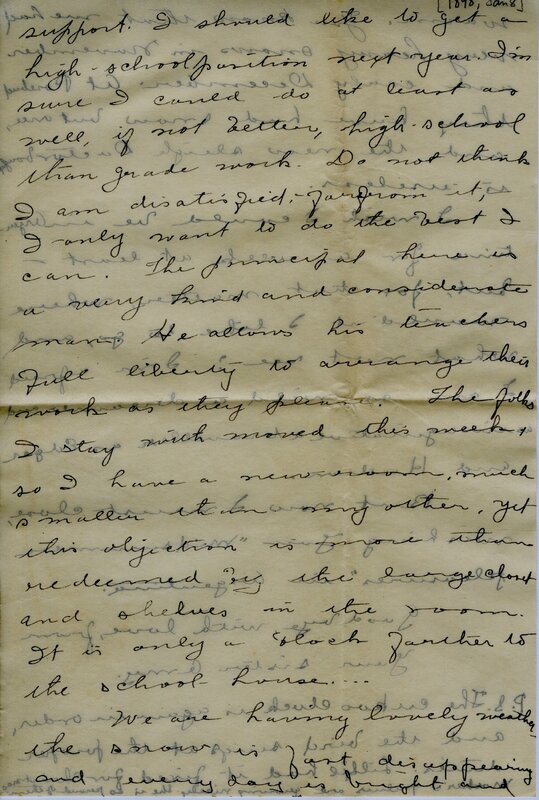 [1898, Jan 8]
support. I should like to get a
high-school position next year. I'm
sure I could do at least as
well, if not better, high-school
than grade work. Do not think
I am disatisfied,- far from it,
I only want to do the best I
can. The principal here is
a very kind and considerate
man. He allows his teachers
full liberty to arrange their
work as they please. The folks
I stay with moved this week,
so I have a new room, much
smaller than my other, yet
this objection is more than
redeemed by the large closet
and shelves in the room.
It is only a block farther to
the school-house....
We are having lovely weather
the snow is fast disappearing
and every day is bright and